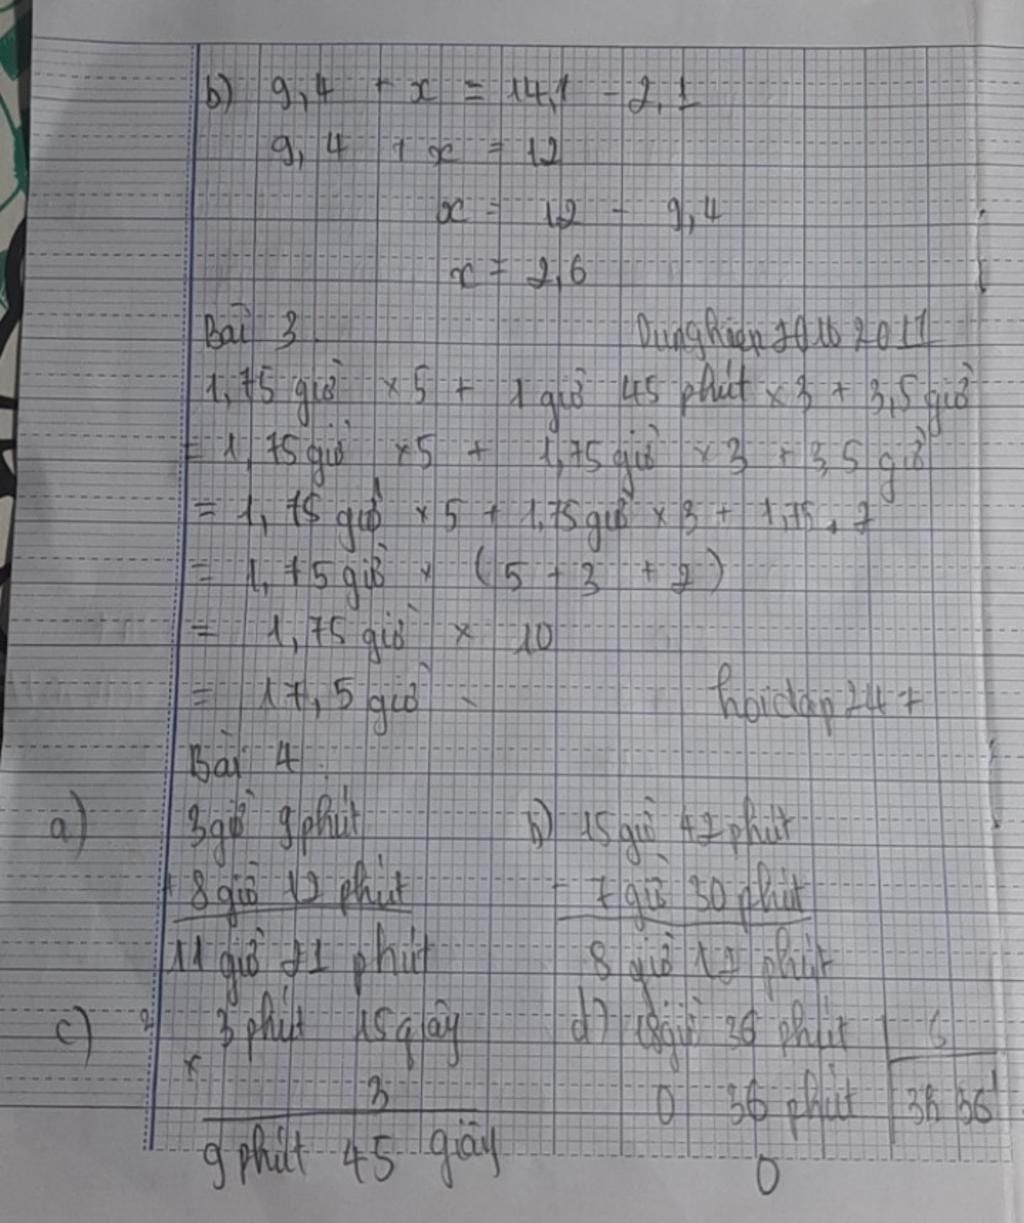 b) 9,4 + x = 14,1 - 2,1
9,4 + x = 12
x = 12 - 9,4
x = 2,6
Bài 3 Dunghien2016 2011
1,75 giờ ×5 + 1 giờ 45 phút × 3 + 3,5 giờ
= 1,75 giờ ×5 + 1,75 giờ × 3 + 3,5 giờ
= 1,75 giờ × 5 + 1,75 giờ × 3 + 1,75 . 2
= 1,75 giờ × (5 + 3 + 2)
= 1,75 giờ × 10
= 17,5 giờ hoidap247
Bài 4
a) 3 giờ 9 phút b) 15 giờ 42 phút
+ 8 giờ 12 phút - 7 giờ 30 phút
11 giờ 21 phút 8 giờ 12 phút
c) 3 phút 15 giây d) 18 giờ 36 phút 6
× 3 0 36 phút 3h 36'
9 phút 45 giây 0